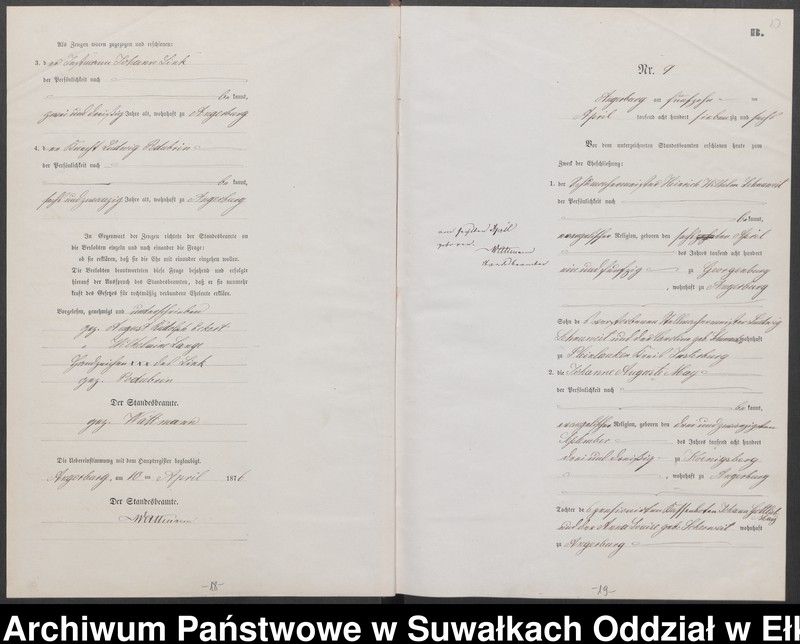 Als Zeugen waren zugezogen und erschienen:
3. der Johann Link
der Persönlichkeit nach
bekannt,
zwei und dreißig Jahre alt, wohnhaft zu Angerburg
4. der Ludwig
der Persönlichkeit nach
bekannt,
sechs und zwanzig Jahre alt, wohnhaft zu Angerburg
In Gegenwart der Zeugen richtete der Standesbeamte an
die Verlobten einzeln und nach einander die Frage:
ob sie erklären, daß sie die Ehe mit einander eingehen wollen.
Die Verlobten beantworteten diese Frage bejahend und erfolgte
hierauf der Ausspruch des Standesbeamten, daß er sie nunmehr
kraft des Gesetzes für rechtmäßig verbundene Eheleute erkläre.
Vorgelesen, genehmigt und unterschrieben
gez. August Rudolph Eckert
" Wilhelmine Lange
Handzeichen xxx des Link
gez.
Der Standesbeamte.
gez. Wattmann
Die Uebereinstimmung mit dem Hauptregister beglaubigt.
Angerburg, am 10 ten April 1876
Der Standesbeamte.
Wattmann
-18-
B.
Nr. 9
Angerburg am fünfzehn ten
April tausend acht hundert siebenzig und sechs
Vor dem unterzeichneten Standesbeamten erschienen heute zum
Zweck der Eheschließung:
1. der Heinrich Wilhelm
der Persönlichkeit nach
bekannt,
evangelischer Religion, geboren den sechsten April
des Jahres tausend acht hundert
ein und fünfzig zu Georgenburg
, wohnhaft zu Angerburg
am sechsten April
geboren.
Wattmann
Standesbeamter
Sohn des verstorbenen Ludwig
und der Caroline geb. wohnhaft
zu Kreis Insterburg
2. die Johanne Auguste May
der Persönlichkeit nach
bekannt,
evangelischer Religion, geboren den drei und zwanzigsten
September des Jahres tausend acht hundert
drei und dreißig zu Koenigsberg
, wohnhaft zu Angerburg
Tochter des pensionirten Johann Gottlieb
May
und der Anna Louise geb. wohnhaft
zu Angerburg
-19-
Archiwum Państwowe w Suwałkach Oddział w Eł